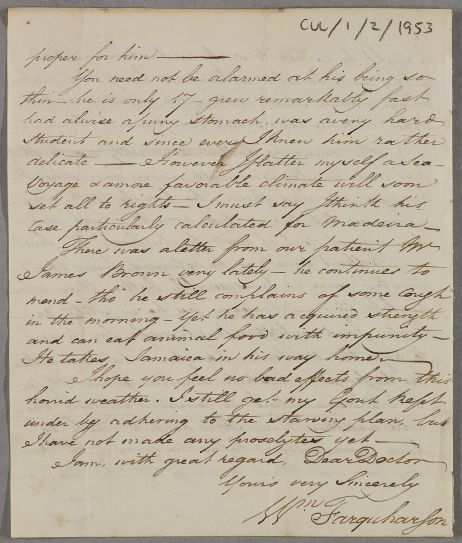 CUL/1/2/1953
proper for him —
You need not be alarmed at his being so
thin — he is only 17 — grew remarkably fast
had alwise a puny stomach, was a very hard
Student and since ever I knew him rather
delicate — However I flatter myself a Sea-
Voyage & a more favorable climate will soon
set all to rights — I must say I think his
case particularly calculated for Madeira —
There was a letter from our patient Mr
James Brown very lately — he continues to
mend — tho he still complains of some Cough
in the morning — yet he has acquired strength
and can eat animal food with impunity —
He takes Jamaica in his way home —
I hope you feel no bad effects from this
horrid weather. I still get my Gout kept
under by adhering to the starving plan, but
I have not made any proselytes yet —
I am, with great regard, Dear Doctor
Yours very Sincerely
Wm Farquharson